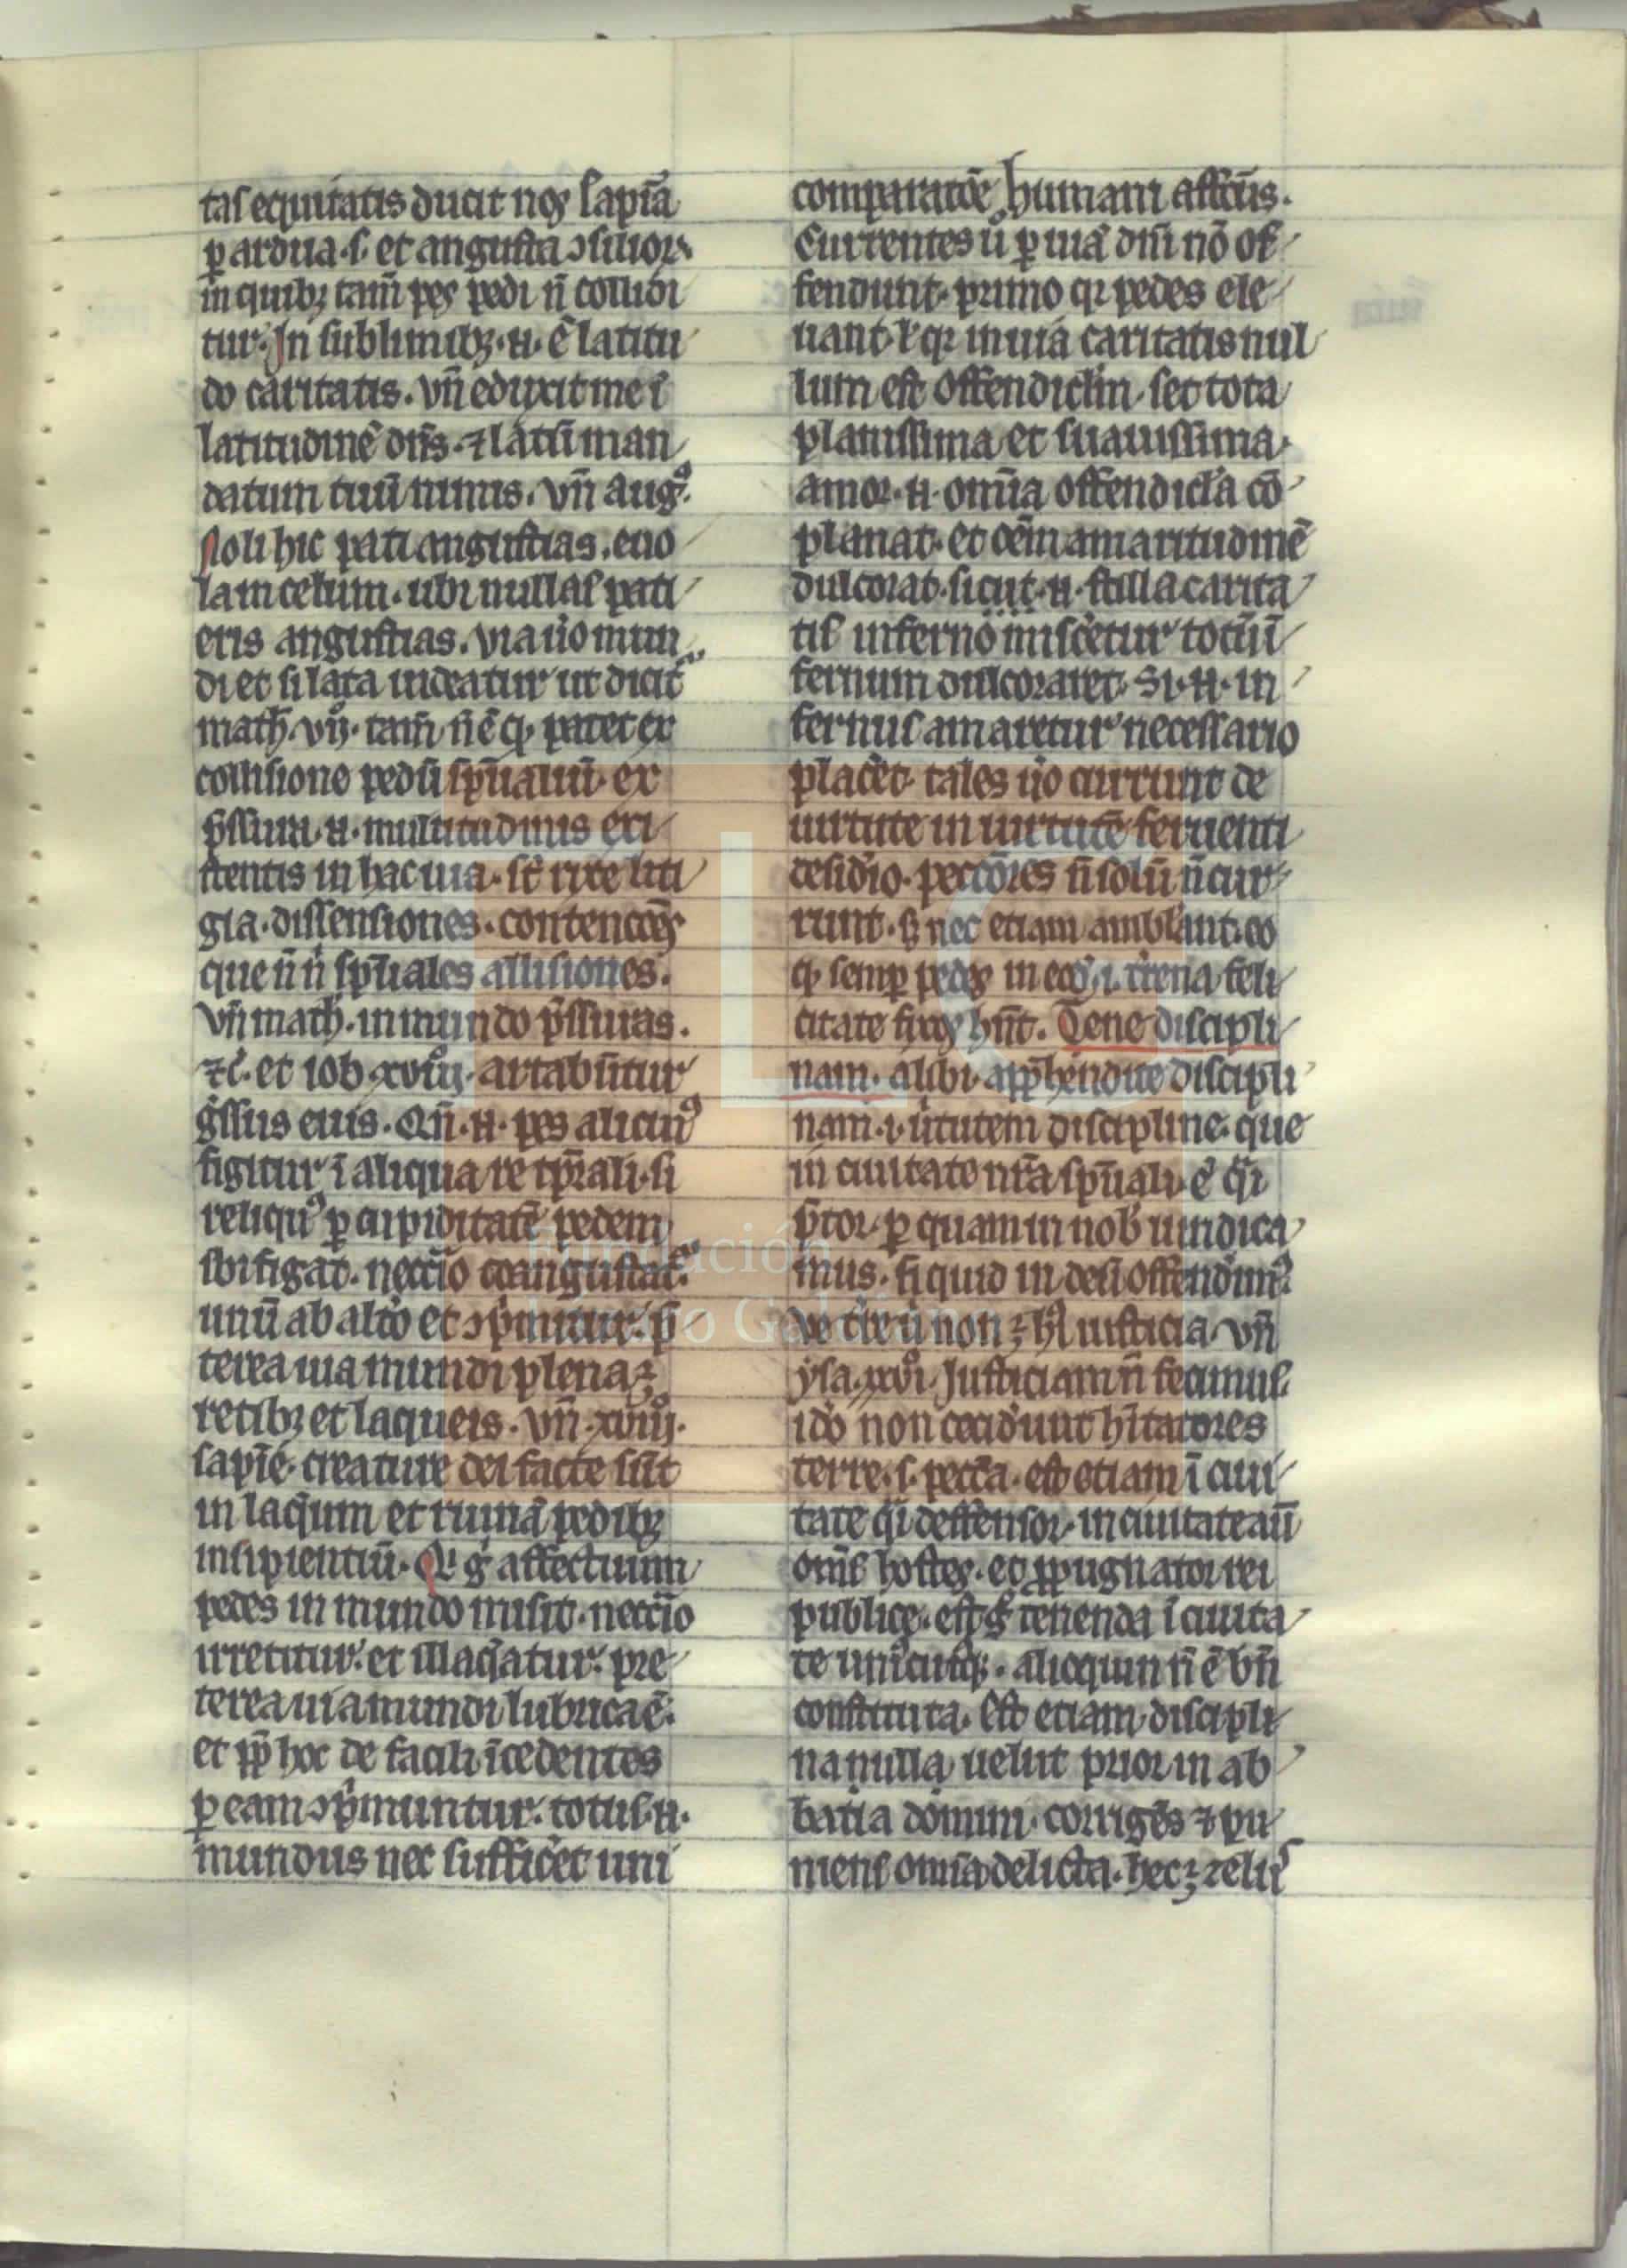 tas equitatis ducit nos sapīa
ꝑ ardua .s. et angusta ɔsilioꝝ
in quibꝫ tam̄ pes pedi n̄ collidi
tur. In sublimibꝫ .n. ē latitu
do caritatis. vn̄ eduxit me ī
latitudinē dn̄s. ⁊ latū man
datum tuū nimis. vn̄ augꝰ.
Noli hic pati angustias. euo
la in celum. ubi nullas pati
eris angustias. via ũo mun
di et si lata uideatur ut dicit᷑
math̄. vij. tam̄ n̄ ē ꝙ patet ex
collisione pedū sp̄ualiū. ex
p̄ssura .n. multitudinis exi
stentis in hac uia. st̄ rixe liti
gia. dissensiones. contencōes
que ū n̄ sp̄uales allisiones.
vn̄ math̄. in mundo p̄ssuras.
⁊c̄. et iob xviij. artabūtur
g̃ssus eius. Qn̄ .n. pes alicuiꝰ
figitur ī aliqua re tp̄rali. si
reliquꝰ ꝑ cupiditatē pedem
ibi figat. neccīo coangustat᷑.
unū ab alt̃o et ɔp̃mitur. p̄
terea uia mundi plena ꝫ
retibꝫ et laqueis. vn̄. xiiij.
sapīe. creature dei facte sūt
in laq̄um et ruinā pedibꝫ
insipientiū. Qi g̃ affectuum
pedes in mundo misit. neccīo
irretitur. et illaq̄atur. pre
terea uia mundi lubrica ē.
et ꝓp̄ hoc de facili īcedentes
ꝑ eam ɔp̃muntur. totus .n.
mundus nec sufficēt uni
comparatōe humani affcūs.
Currentes ū ꝑ uiā dn̄i nō of
fendunt. primo qꝛ pedes ele
uant. ł qꝛ in uia caritatis nul
lum est offendiclm̄. set tota
planissima et suauissima.
amor .n. omīa offendicla cō
planat. et oēm amaritudinē
dulcorat. sicut .n. stilla carita
tis inferno misc̃etur totū ī
fernum dulcoraret. Si .n. in
fernus amaretur necessario
placēt. tales ũo currunt de
uirtute in uirtutē feruenti
desid̃io. pecc̄ores n̄ solū n̄ cur
runt. sꝫ nec etiam amblant. eo
ꝙ semꝑ pedes in eo .i. tr̃ena feli
citate fixos hn̄t. Tene discipli
nam. alibi. app̃hendite discipli
nam .i. ũtutem discipline. que
in ciuitate nr̄a sp̄uali. ē q̃i
p̃tor. ꝑ quam in nob̃ uindica
mus. siquid in deū offendimꝰ.
de tr̃e ũ non ꝫ hꝰ iusticia. vn̄
ysa. xxvi. Iusticiam n̄ fecimus.
id̃o non cecid̃unt hītatores
terre .s. pecc̄a. est etiam ī ciui
tate q̃i deffensor. in ciuitate aū
om̄s hostes. eq̨ ꝓpugnator rei
publice. est g̃ tenenda ī ciuita
te unicuiqꝫ. alioquin n̄ ē bn̄
constituta. Est etiam discipli
na in illa uelut prior in ab
batia domini. corrigēs ⁊ pu
niens omīa delicta. hec ꝫ zeliꝰ